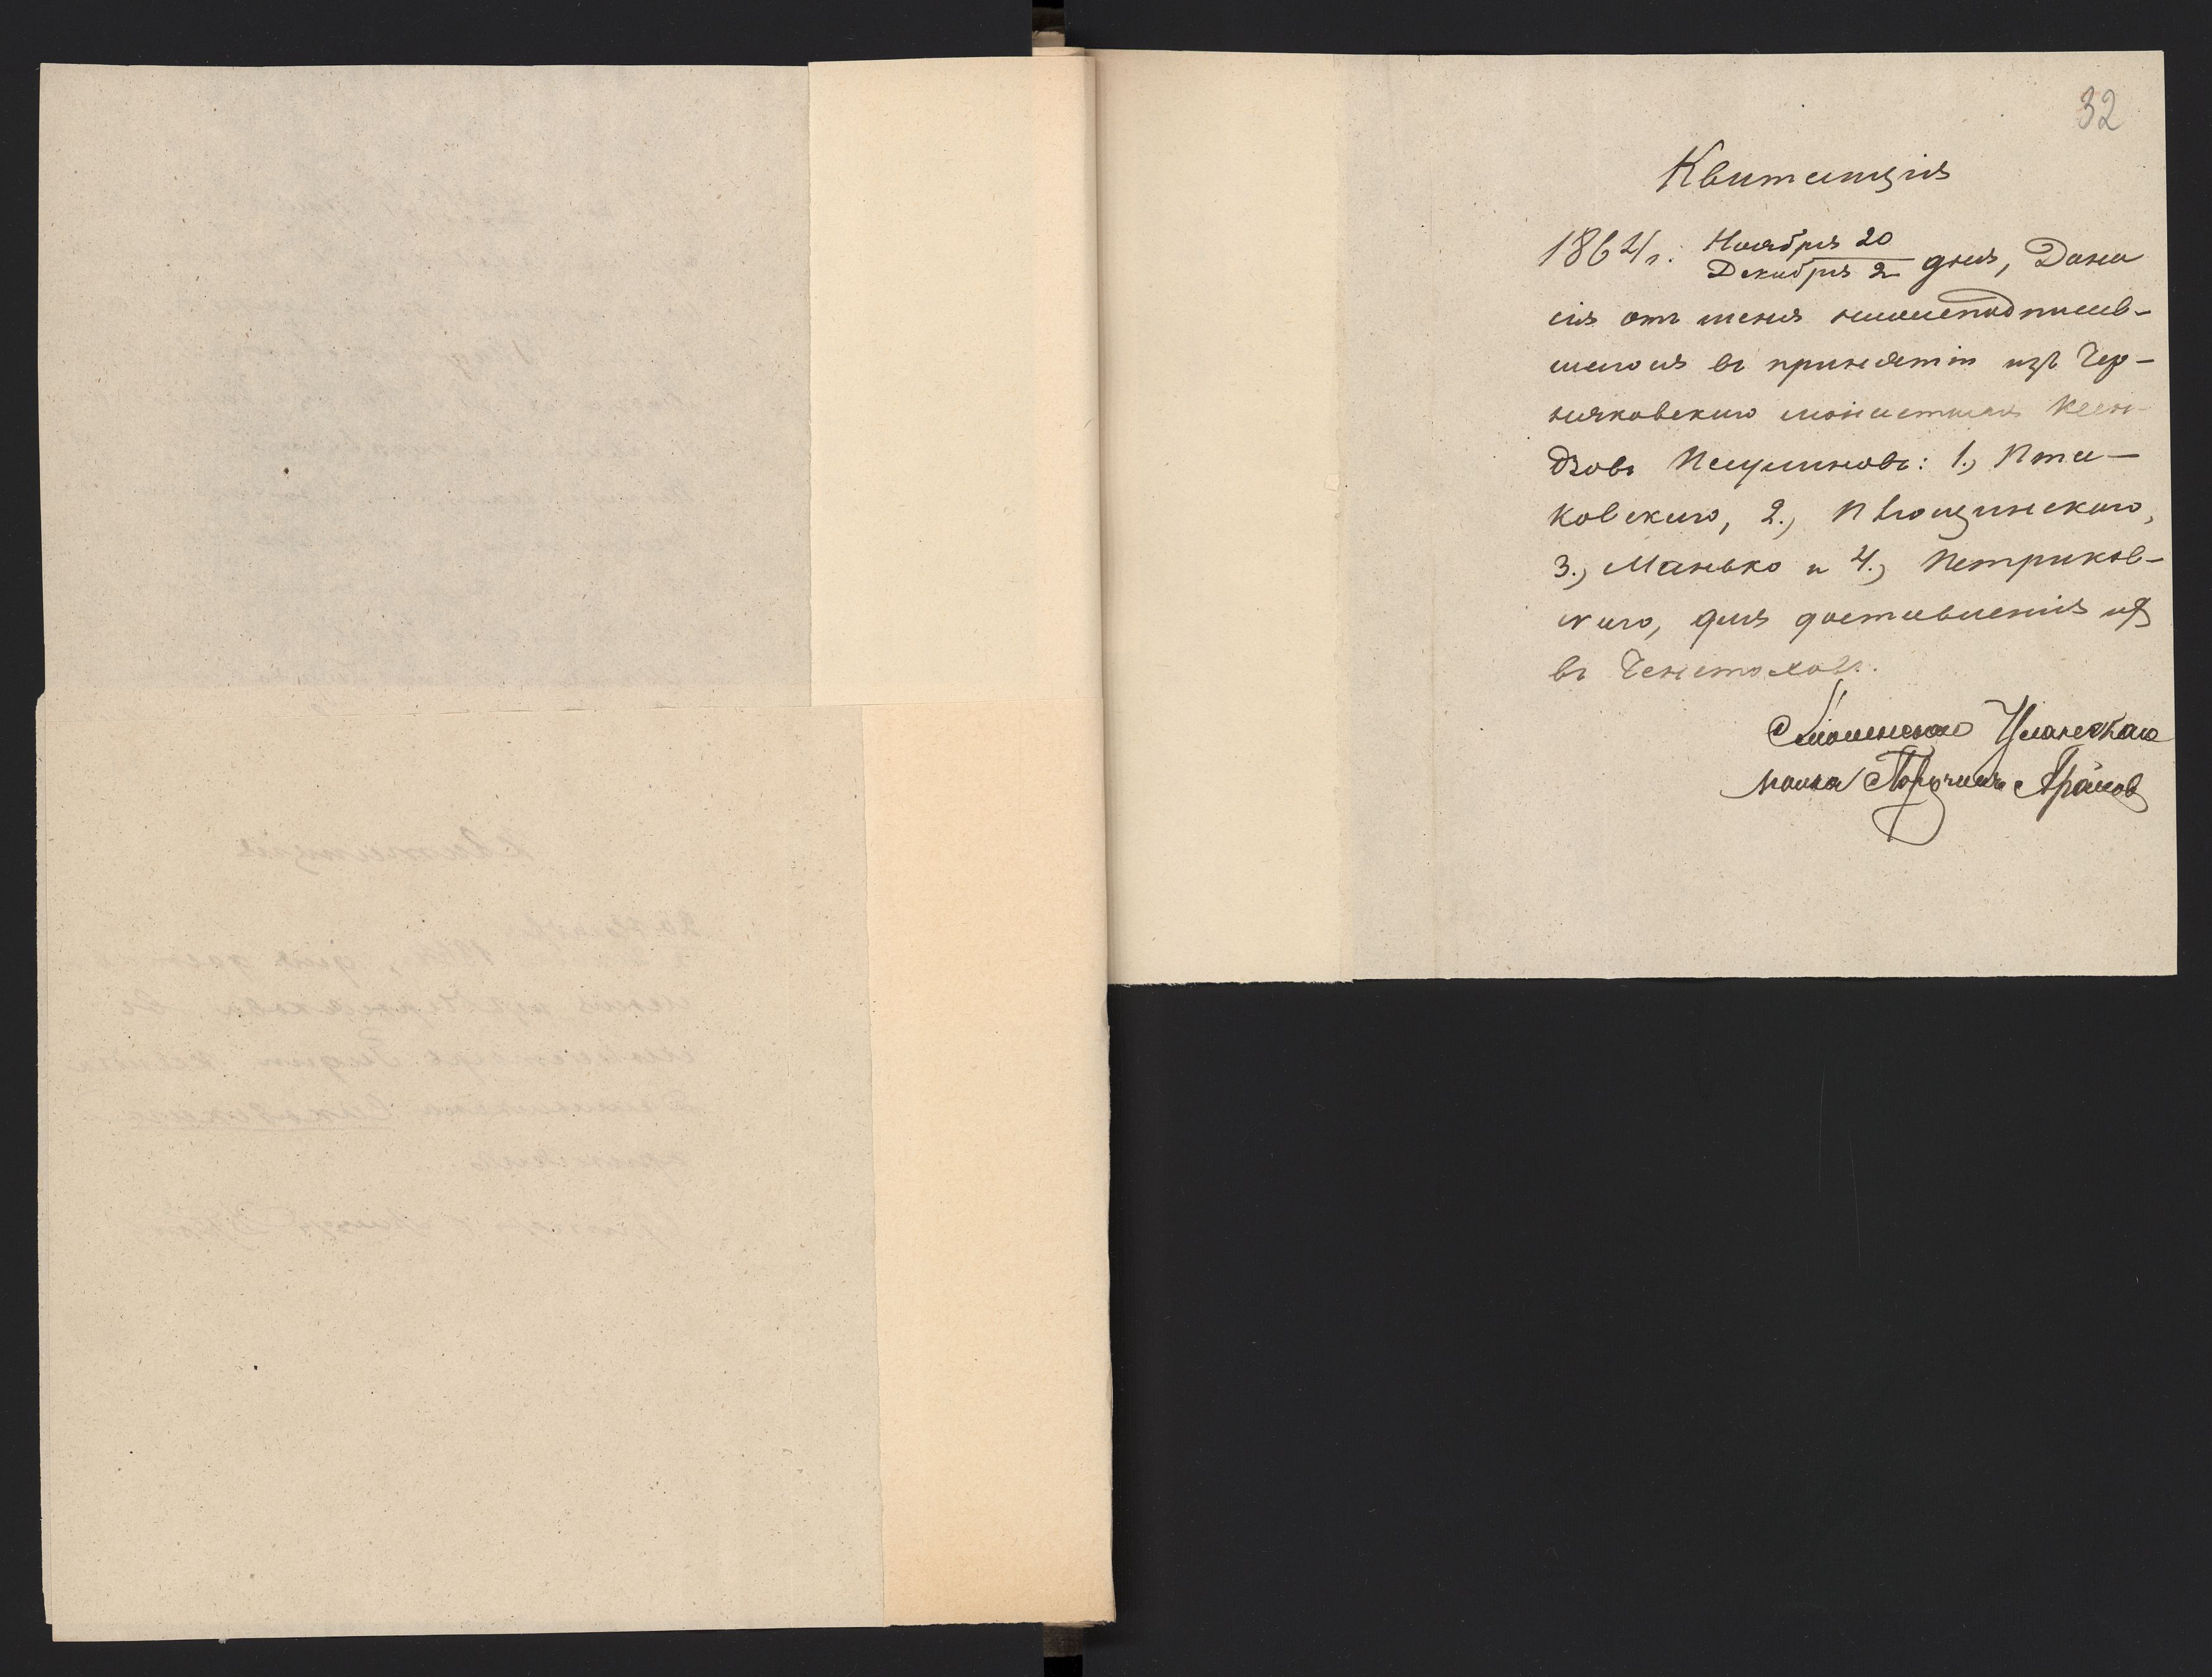 32
Квитанція
1864 г. Ноября 20
Декабря 2 дня, Дана
сія отъ меня нижеподписав-
шагося въ принятіи изъ Чер-
няковскаго монастыря Ксен-
дзовъ Паулиновъ: 1., Пта-
ковскаго, 2.,
3., Манько и 4., Петриков-
скаго, для доставленія ихъ
въ Ченстоховъ.
Смоленскаго Уланскаго
полка Поручикъ